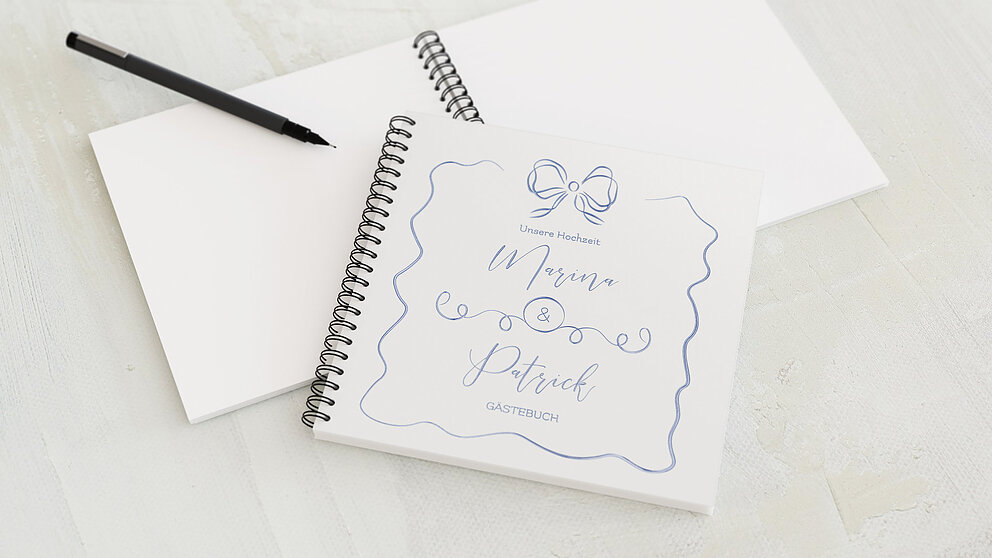 Unsere Hochzeit
Marina
&
Patrick
GÄSTEBUCH